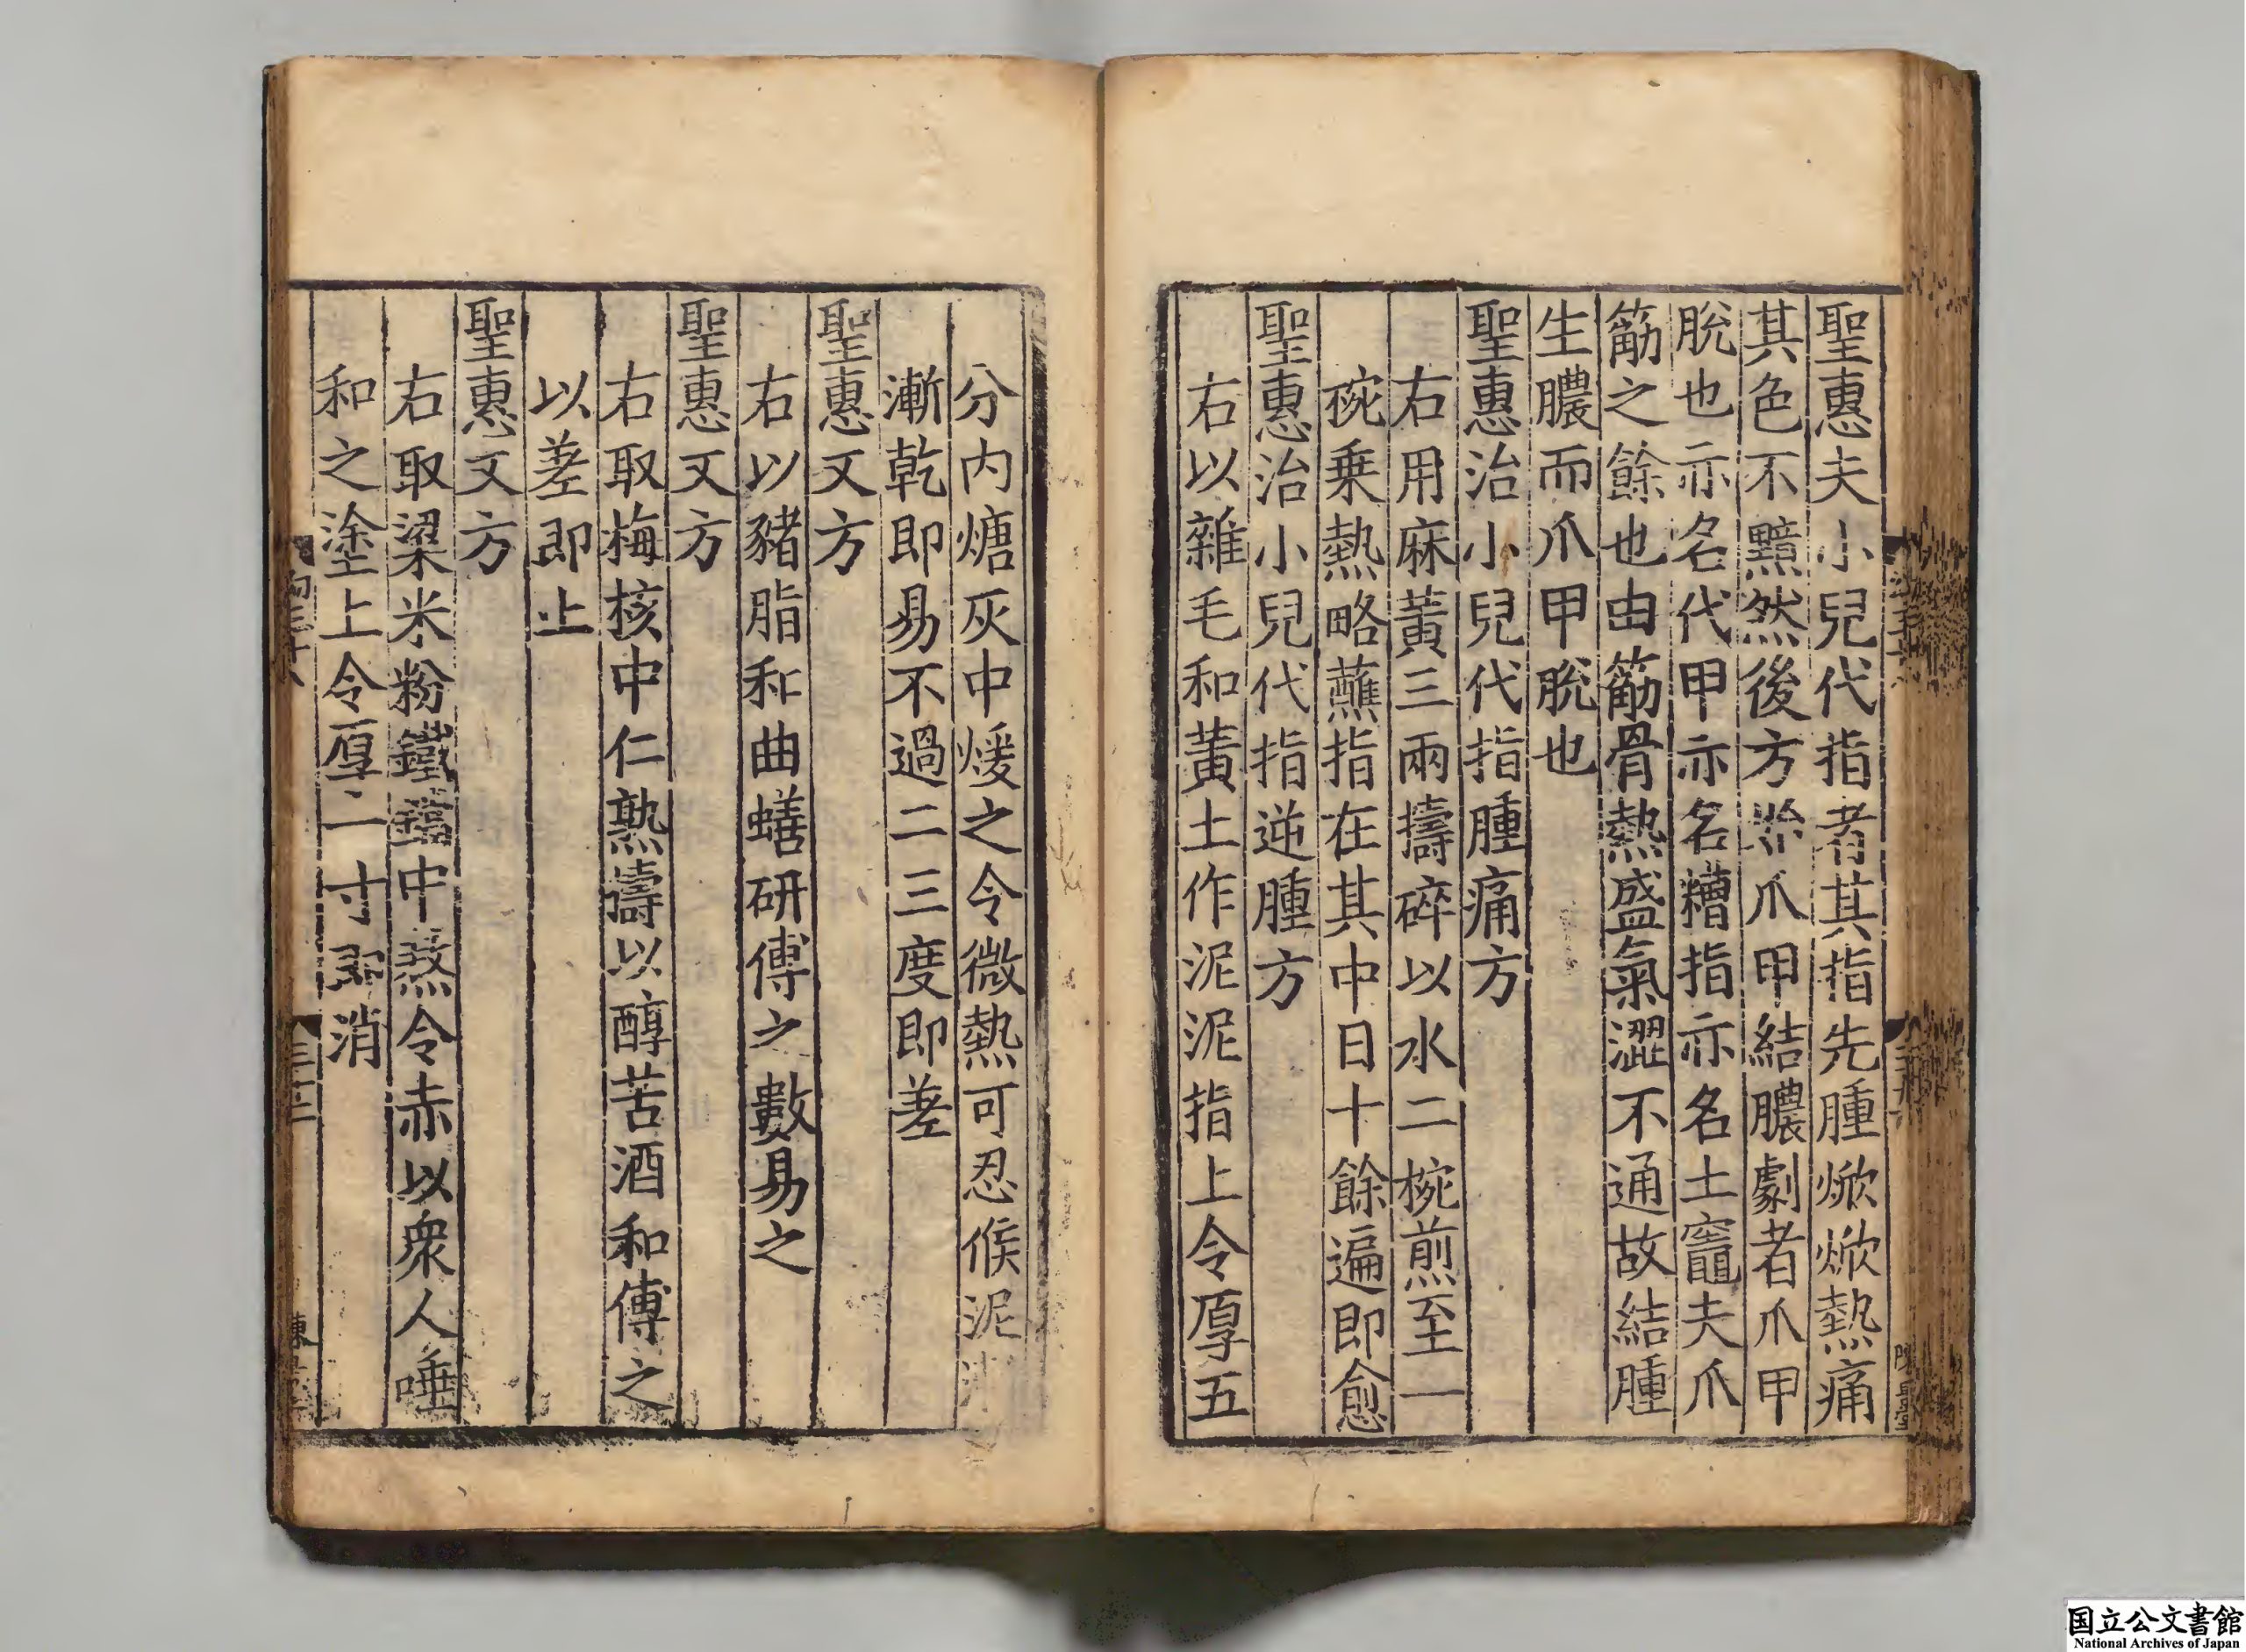 聖惠夫小兒代指者其指先腫焮焮熱痛
其色不黯然後方㸃爪甲結膿劇者爪甲
脫也亦名代甲亦名糟指亦名土竈夫爪
筋之餘也由筋骨熱盛氣澀不通故結腫
生膿而爪甲脫也
聖惠治小兒代指腫痛方
右用麻黃三兩擣碎以水二椀煎至一
椀乗熱略蘸指在其中日十餘遍即愈
聖惠治小兒代指逆腫方
右以雜毛和黃土作泥泥指上令厚五
分内煻灰中煖之令微熱可忍候泥
漸乾即易不過二三度即差
聖惠又方
右以豬脂和曲蟮研傅之數易之
聖惠又方
右取梅核中仁熟擣以醇苦酒和傅之
以差即止
聖惠又方
右取粱米粉鐵鐺中熬令赤以衆人唾
和之塗上令厚二寸即消
国立公文書館
National Archives of Japan